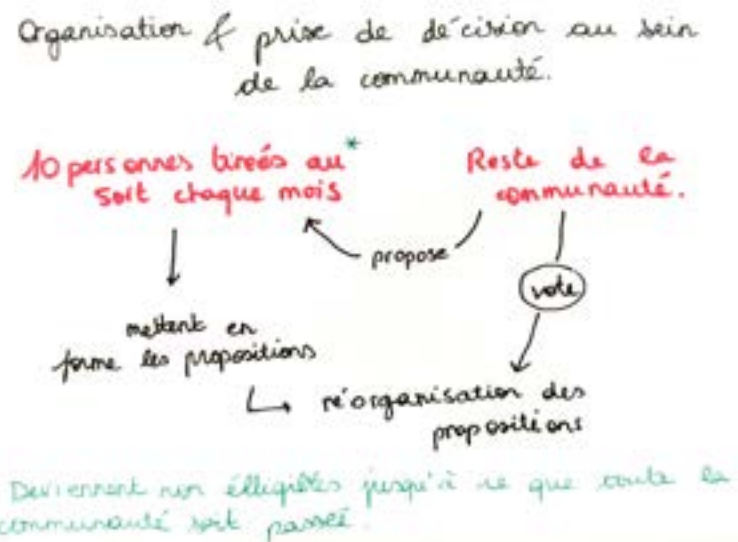 Organisation & prise de décision au sein
de la communauté.
10 personnes tireés au *
sort chaque mois
Reste de la
communauté.
propose
vote
mettent en
forme les propositions
réorganisation des
propositions
Deviennent non élligibles jusqu'à ce que toute la
communauté soit passeé.